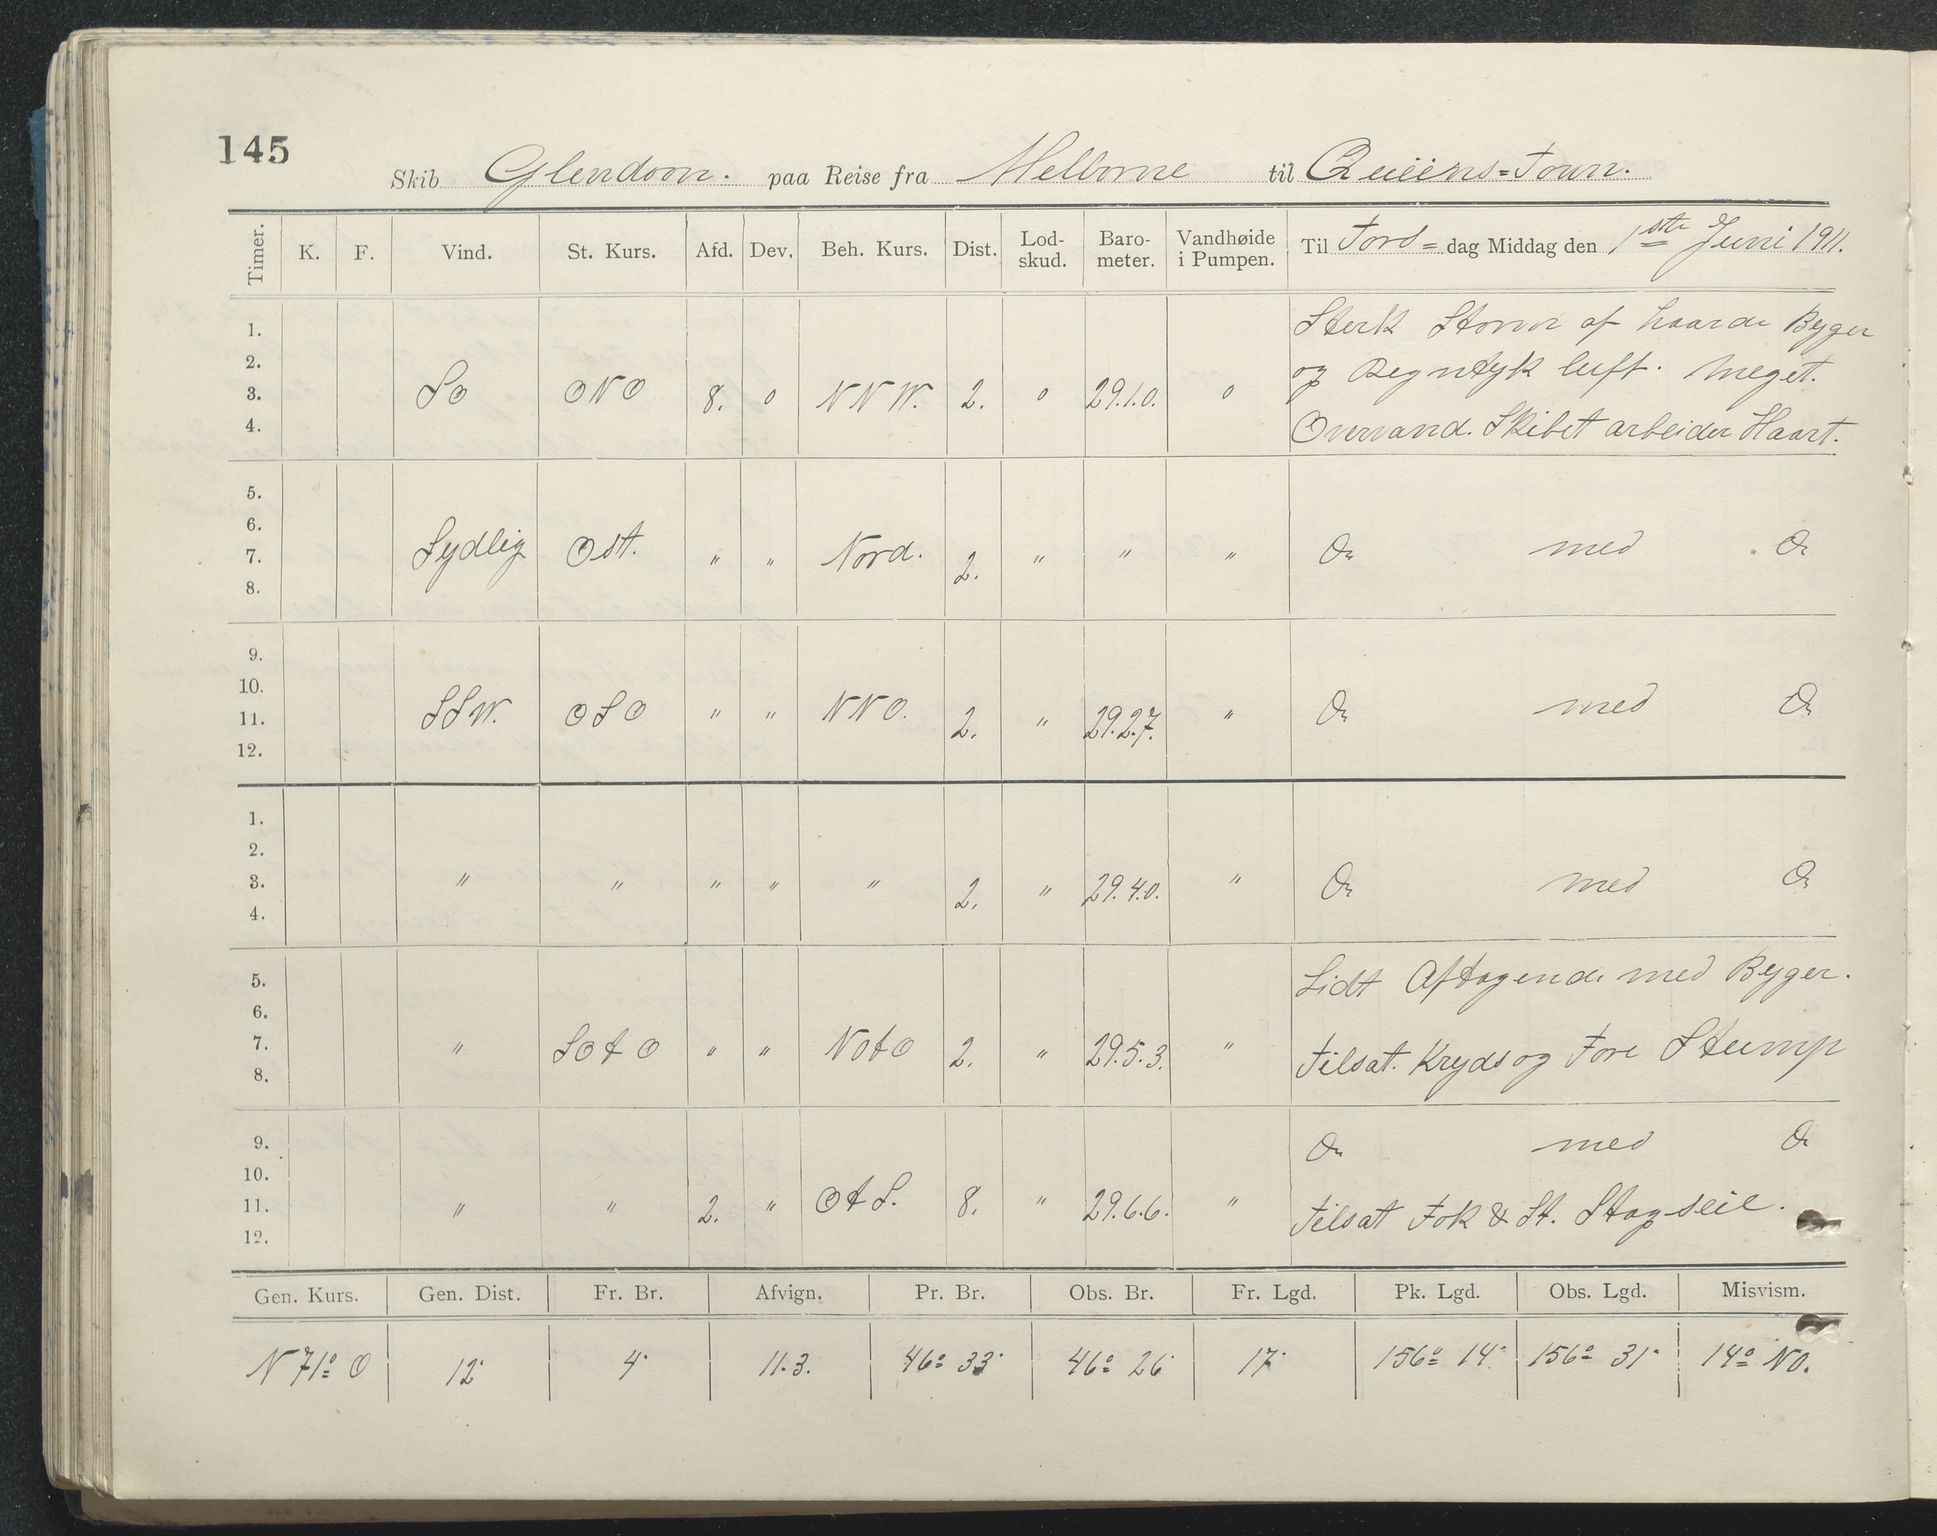 145
Skib Glendoon. paa Reise fra Melborne til Queiens=Toun.
Timer. K. F. Vind. St. Kurs. Afd. Dev. Beh. Kurs. Dist. Lod-skud. Baro-meter. Vandhøide i Pumpen. Til Tors= dag Middag den 1ste Juni 1911.
1. Sterk Storm af haarde Byger
2. og Regntyk luft. Meget.
3. SO ONO 8. 0 NNW. 2. 0 29.1.0. 0
4. Overvand. Skibet arbeider Haart.
5.
6.
7. Sydlig Ost. " " Nord. 2. " " " Do med Do
8.
9.
10.
11. SSW. OSO " " NNO. 2. " 29.2.7. " Do med Do
12.
1.
2.
3. " " " " " 2. " 29.4.0. " Do med Do
4.
5. Lidt Aftagende med Byger.
6.
7. " SOtO " " NOtO 2. " 29.5.3. " Tilsat. Kryds og Fore Stump
8.
9. Do med Do
10.
11. " " 2. " OtS. 8. " 29.6.6. " Tilsat Fok & St. Stagseil.
12.
Gen. Kurs. Gen. Dist. Fr. Br. Afvign. Pr. Br. Obs. Br. Fr. Lgd. Pk. Lgd. Obs. Lgd. Misvism.
N 71° O 12' 4' 11.3. 46° 33' 46° 26' 17' 156° 14' 156° 31' 14° NO.